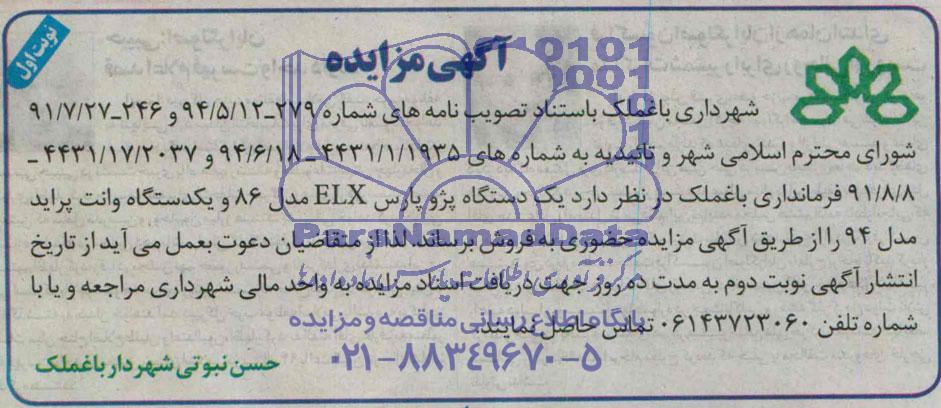 نوبت اول
آگهی مزایده
شهرداری باغملک باستناد تصویب نامه های شماره ۲۷۹ـ۹۴/۵/۱۲ و ۲۴۶ـ۹۱/۷/۲۷
شورای محترم اسلامی شهر و تائیدیه به شماره های ۴۴۳۱/۱/۱۹۳۵ ـ ۹۴/۶/۱۸ و ۴۴۳۱/۱۷/۲۰۳۷ ـ
۹۱/۸/۸ فرمانداری باغملک در نظر دارد یک دستگاه پژو پارس ELX مدل ۸۶ و یکدستگاه وانت پراید
مدل ۹۴ را از طریق آگهی مزایده حضوری به فروش برساند. لذا از متقاضیان دعوت بعمل می آید از تاریخ
انتشار آگهی نوبت دوم به مدت ده روز جهت دریافت اسناد مزایده به واحد مالی شهرداری مراجعه و یا با
شماره تلفن ۰۶۱۴۳۷۲۳۰۶۰ تماس حاصل نمایند.
حسن نبوتی شهردار باغملک
ParsNamadData
پایگاه اطلاع رسانی مناقصه و مزایده
۰۲۱-۸۸۳۴۹۶۷۰-۵